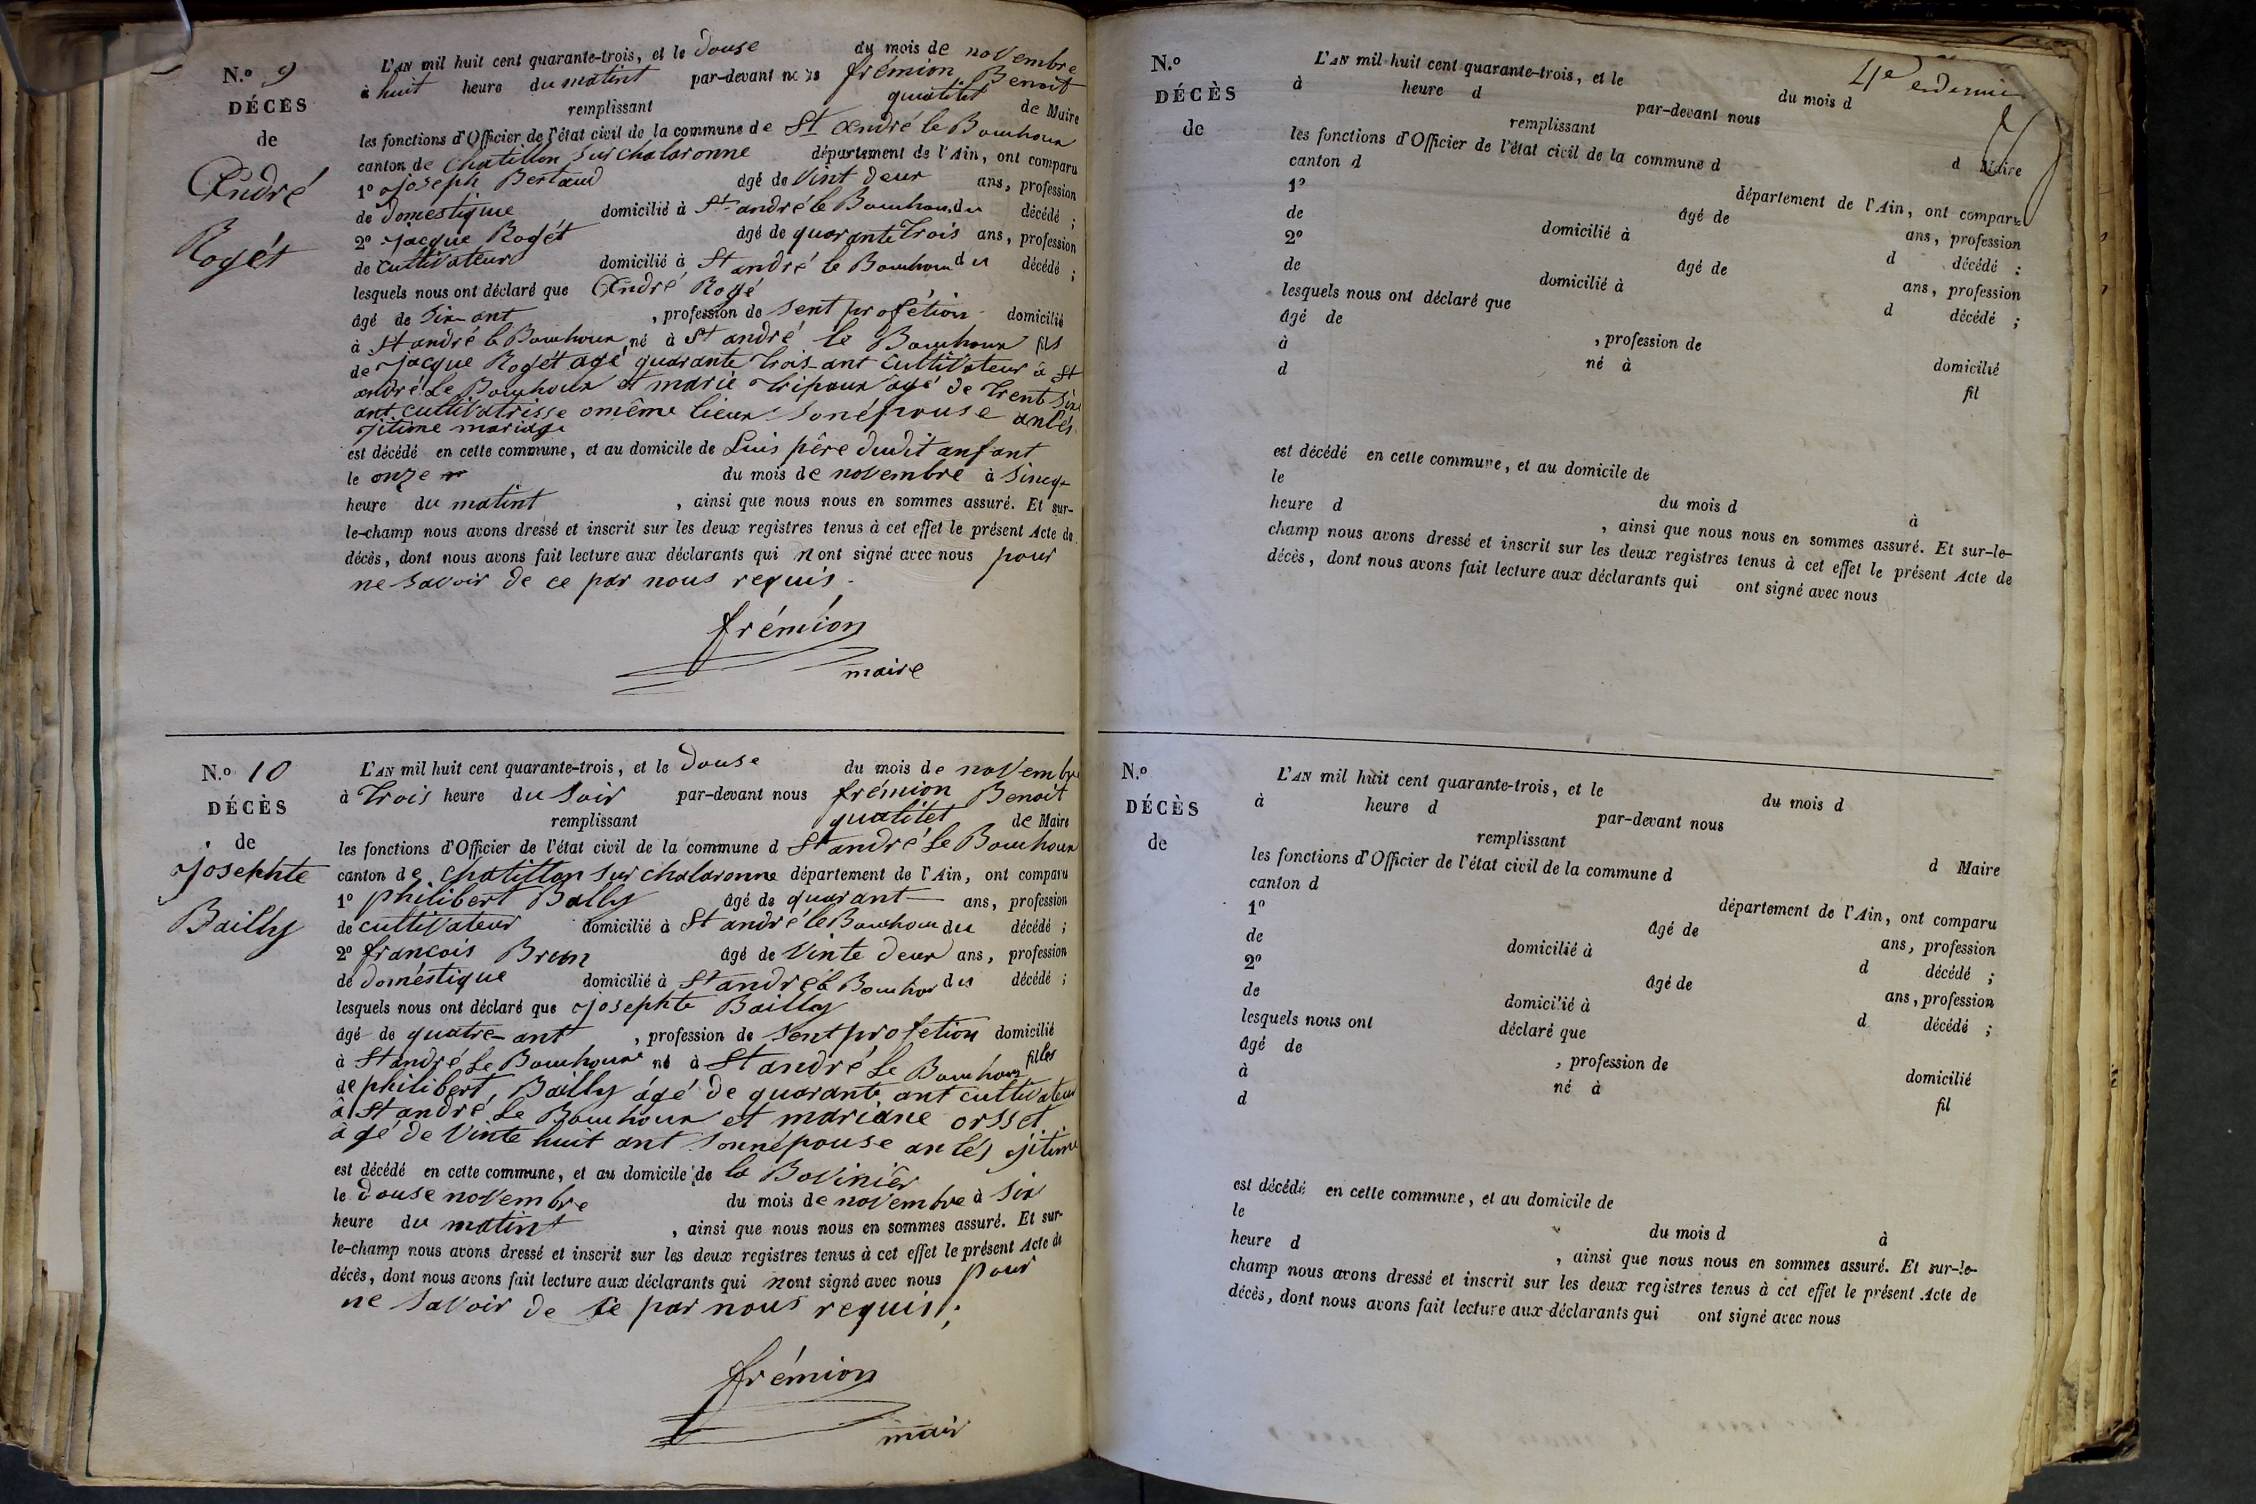 N.º 9
DÉCÈS
de
André
Rogét
L'AN mil huit cent quarante-trois, et le douse du mois de novembre
à huit heure du matint par-devant nous frémion Benoit
remplissant qualitét de Maire
les fonctions d'Officier de l'état civil de la commune de St André le Bouchoux
canton de Chatillon sur chalaronne département de l'Ain, ont comparu
1º joseph Bertaud âgé de Vint deux ans, profession
de doméstique domicilié à St andré le Bouchoux du décédé ;
2º jacque Rogét âgé de quarante trois ans, profession
de cultivateur domicilié à St andré le Bouchoux du décédé ;
lesquels nous ont déclaré que André Rogé
âgé de Six ant , profession de sent profétion domicilié
à St andré le Bouchoux né à St andré le Bouchoux fils
de jacque Rogét agé quarante trois ant cultivateur à St
andré le Bouchoux et marie agé de trent six
ant cultivatrisse omême lieux sonépouse anlés
jitime mariage
est décédé en cette commune, et au domicile de Luis père dudit anfant
le onze du mois de novembre à sincq
heure du matint , ainsi que nous nous en sommes assuré. Et sur-
le-champ nous avons dressé et inscrit sur les deux registres tenus à cet effet le présent Acte de
décès, dont nous avons fait lecture aux déclarants qui n'ont signé avec nous pour
ne savoir de ce par nous requis.
frémion
maire
N.º 10
DÉCÈS
de
josephte
Bailly
L'AN mil huit cent quarante-trois, et le douse du mois de novembre
à trois heure du soir par-devant nous frémion Benoit
remplissant qualitét de Maire
les fonctions d'Officier de l'état civil de la commune d St andré le Bouchoux
canton de chatillon sur chalaronne département de l'Ain, ont comparu
1º philibert Bally âgé de quarant ans, profession
de cultivateur domicilié à St andré le Bouchoux du décédé ;
2º francois Brun âgé de Vinte deux ans, profession
de doméstique domicilié à St andré le Bouchoux du décédé ;
lesquels nous ont déclaré que josephte Bailly
âgé de quatre ant , profession de sent profetion domicilié
à St andré le Bouchoux né à St andré le Bouchoux filles
de philibert, Bailly âgé de quarante ant cultivateur
à St andré le Bouchoux et mariane orsset
âgé de Vinte huit ant sonnépouse anlés jitime
est décédé en cette commune, et au domicile de la Bovinièr
le douse novembre du mois de novembre à six
heure du matint , ainsi que nous nous en sommes assuré. Et sur-
le-champ nous avons dressé et inscrit sur les deux registres tenus à cet effet le présent Acte de
décès, dont nous avons fait lecture aux déclarants qui nont signé avec nous pour
ne savoir de ce par nous requis;
frémion
mair
4e
N.º
DÉCÈS
de
L'AN mil huit cent quarante-trois, et le du mois d
à heure d par-devant nous
remplissant d Maire
les fonctions d'Officier de l'état civil de la commune d
canton d département de l'Ain, ont comparu
1º âgé de ans, profession
de domicilié à d décédé ;
2º âgé de ans, profession
de domicilié à d décédé ;
lesquels nous ont déclaré que
âgé de , profession de domicilié
à né à fil
d
est décédé en cette commune, et au domicile de
le du mois d à
heure d , ainsi que nous nous en sommes assuré. Et sur-le-
champ nous avons dressé et inscrit sur les deux registres tenus à cet effet le présent Acte de
décès, dont nous avons fait lecture aux déclarants qui ont signé avec nous
N.º
DÉCÈS
de
L'AN mil huit cent quarante-trois, et le du mois d
à heure d par-devant nous
remplissant d Maire
les fonctions d'Officier de l'état civil de la commune d
canton d département de l'Ain, ont comparu
1º âgé de ans, profession
de domicilié à d décédé ;
2º âgé de ans, profession
de domicilié à d décédé ;
lesquels nous ont déclaré que
âgé de , profession de domicilié
à né à fil
d
est décédé en cette commune, et au domicile de
le du mois d à
heure d , ainsi que nous nous en sommes assuré. Et sur-le-
champ nous avons dressé et inscrit sur les deux registres tenus à cet effet le présent Acte de
décès, dont nous avons fait lecture aux déclarants qui ont signé avec nous